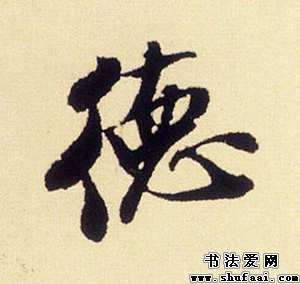 德
书法爱网
www.shufaai.com